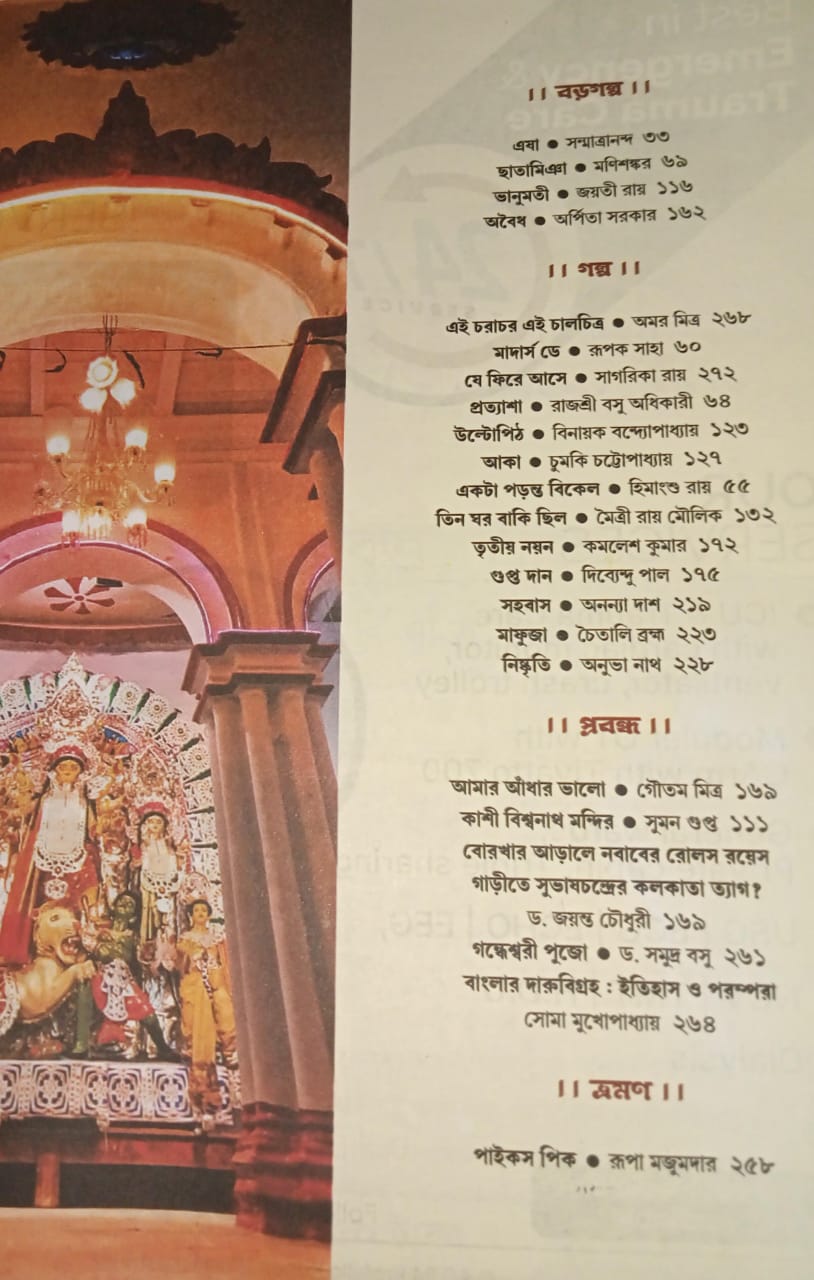 ।। বড়গল্প ।।
এষা ● সন্মাত্রানন্দ ৩৩
ছাতামিঞা ● মণিশঙ্কর ৬৯
ভানুমতী ● জয়তী রায় ১১৬
অবৈধ ● অর্পিতা সরকার ১৬২
।। গল্প ।।
এই চরাচর এই চালচিত্র ● অমর মিত্র ২৬৮
মাদার্স ডে ● রূপক সাহা ৬০
যে ফিরে আসে ● সাগরিকা রায় ২৭২
প্রত্যাশা ● রাজশ্রী বসু অধিকারী ৬৪
উল্টোপিঠ ● বিনায়ক বন্দ্যোপাধ্যায় ১২৩
আকা ● চুমকি চট্টোপাধ্যায় ১২৭
একটা পড়ন্ত বিকেল ● হিমাংশু রায় ৫৫
তিন ঘর বাকি ছিল ● মৈত্রী রায় মৌলিক ১৩২
তৃতীয় নয়ন ● কমলেশ কুমার ১৭২
গুপ্ত দান ● দিব্যেন্দু পাল ১৭৫
সহবাস ● অনন্যা দাশ ২১৯
মাফুজা ● চৈতালি ব্রহ্ম ২২৩
নিষ্কৃতি ● অনুভা নাথ ২২৮
।। প্রবন্ধ ।।
আমার আঁধার ভালো ● গৌতম মিত্র ১৬৯
কাশী বিশ্বনাথ মন্দির ● সুমন গুপ্ত ১১১
বোরখার আড়ালে নবাবের রোলস রয়েস
গাড়ীতে সুভাষচন্দ্রের কলকাতা ত্যাগ?
ড. জয়ন্ত চৌধুরী ১৬৯
গন্ধেশ্বরী পুজো ● ড. সমুদ্র বসু ২৬১
বাংলার দারুবিগ্রহ : ইতিহাস ও পরম্পরা
সোমা মুখোপাধ্যায় ২৬৪
।। ভ্রমণ ।।
পাইকস পিক ● রূপা মজুমদার ২৫৮